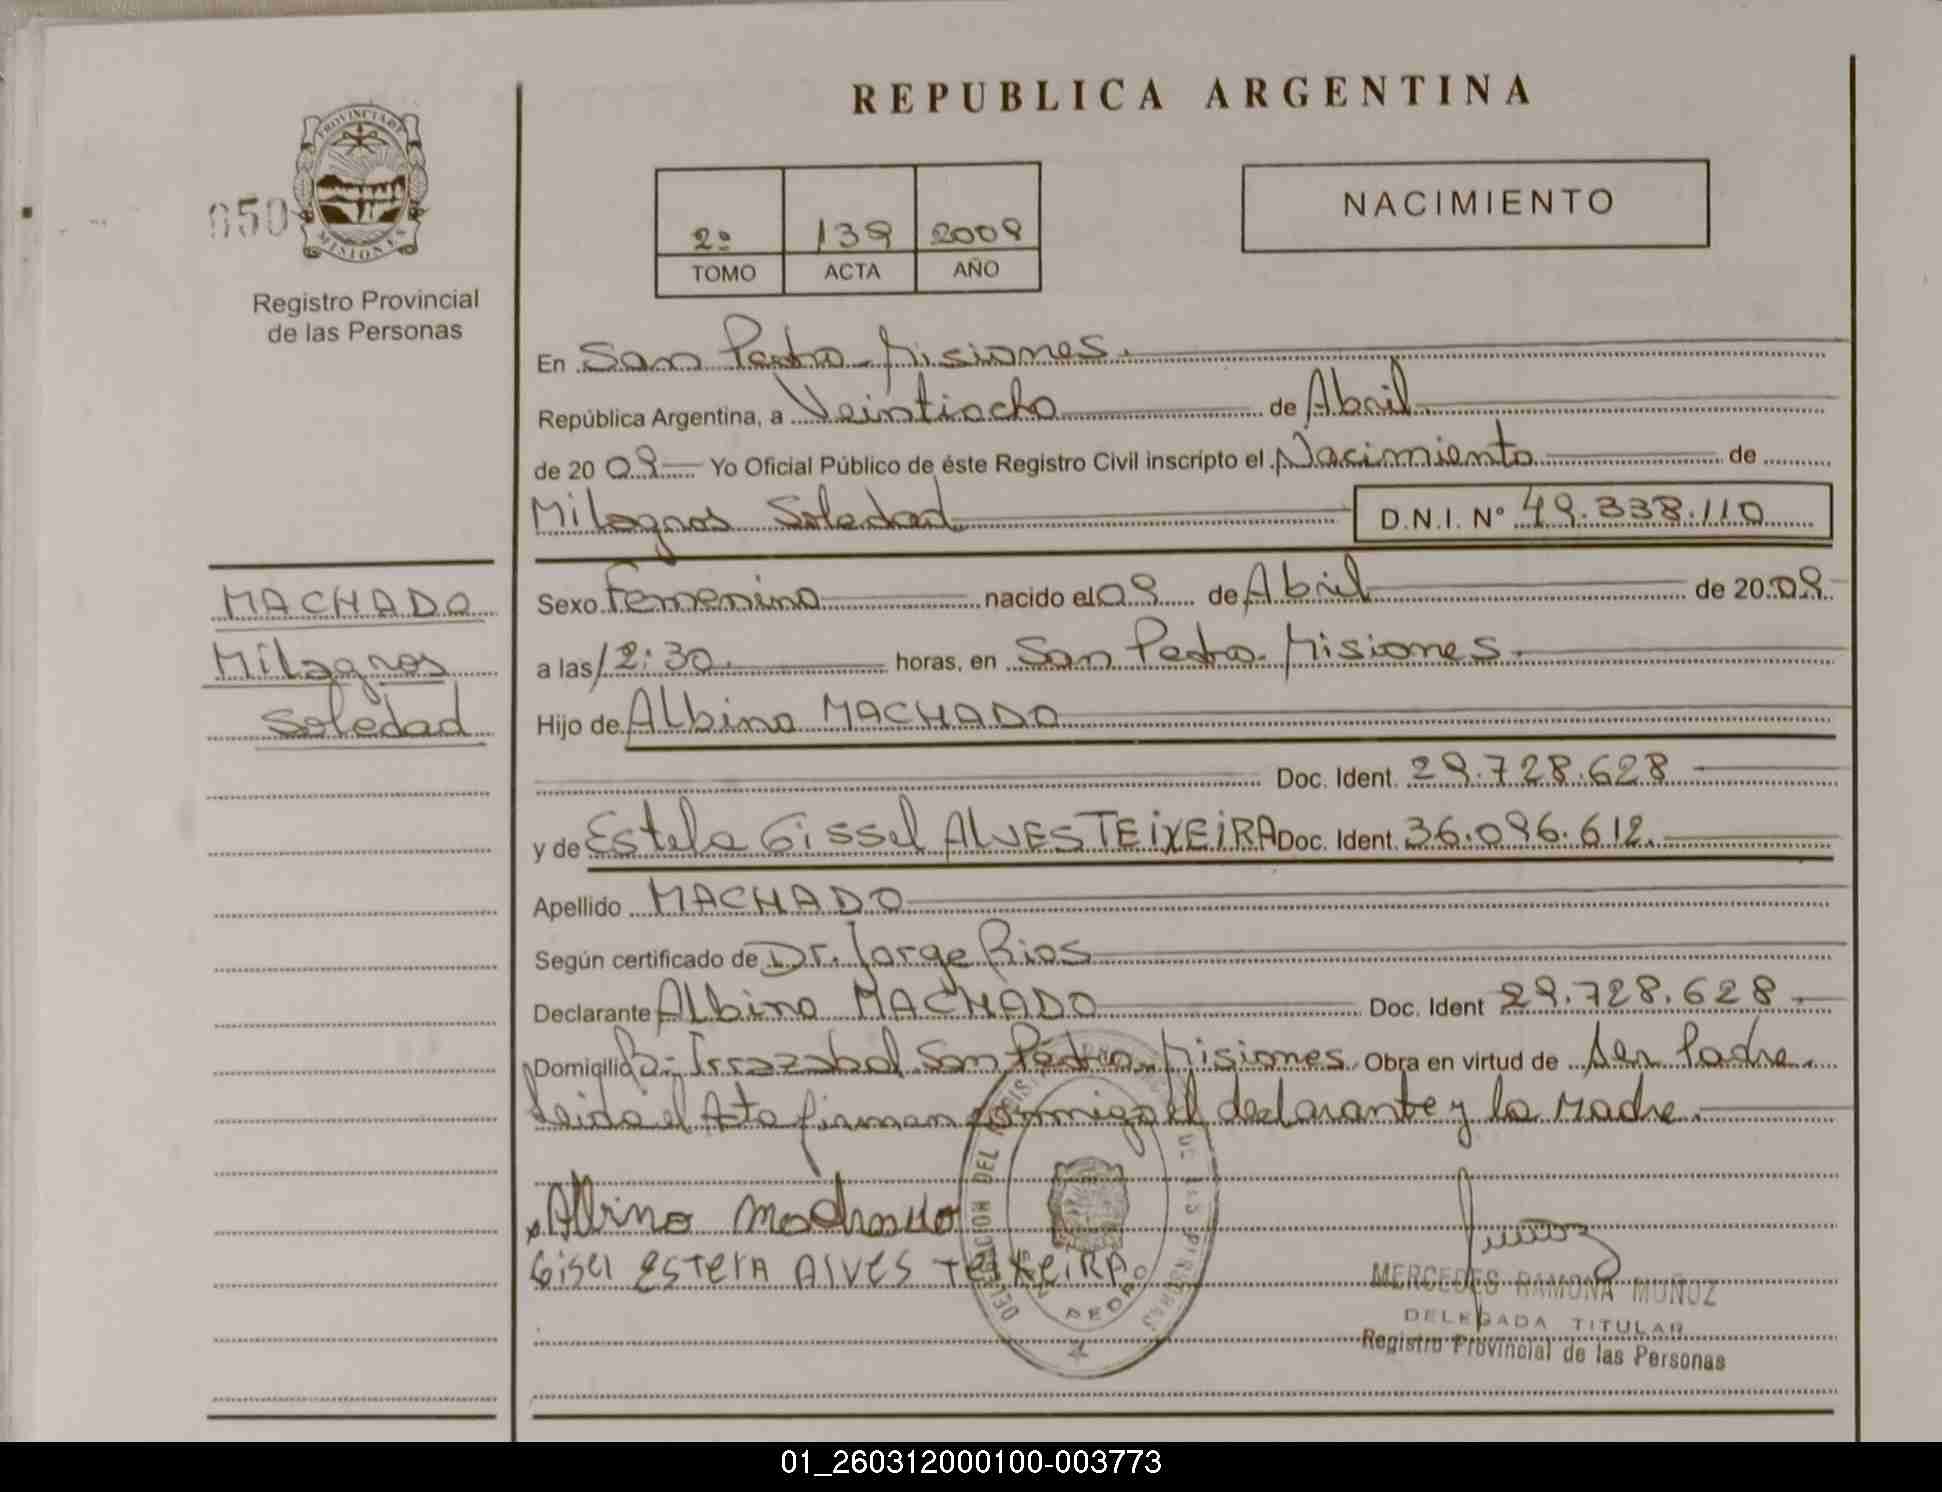 REPUBLICA ARGENTINA
PROVINCIA DE
MISIONES
050
Registro Provincial
de las Personas
2º 139 2009
TOMO ACTA AÑO
NACIMIENTO
En San Pedro Misiones.
República Argentina, a Veintiocho de Abril
de 20 09 Yo Oficial Público de éste Registro Civil inscripto el Nacimiento de
Milagros Soledad D.N.I. Nº 49.338.110
MACHADO
Milagros
Soledad
Sexo Femenino nacido el 09 de Abril de 20 09
a las 12:30 horas, en San Pedro Misiones.
Hijo de Albino MACHADO
Doc. Ident. 29.728.628
y de Estela Gissel ALVES TEiXEiRA Doc. Ident. 36.096.612.
Apellido MACHADO
Según certificado de Dr. Jorge Rios
Declarante Albino MACHADO Doc. Ident 29.728.628.
Domicilio B- Irrazabal San Pedro Misiones Obra en virtud de Ser Padre.
Leido el Ata firman conmigo el declarante y la Madre.
Albino Machado
Gisel ESTELA ALVES TEIXEIRA
DELEGACION DEL REGISTRO PROVINCIAL DE LAS PERSONAS
SAN PEDRO
MERCEDES RAMONA MUÑOZ
DELEGADA TITULAR
Registro Provincial de las Personas
01_260312000100-003773